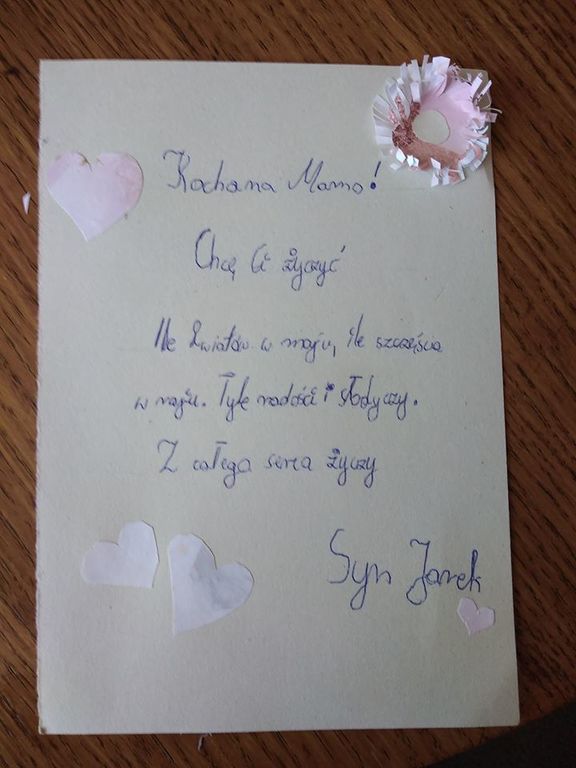 Kochana Mamo!
Chcę Ci życzyć
Ile kwiatów w maju, ile szczęścia
w raju. Tyle radości i słodyczy.
Z całego serca życzy
Syn Jarek